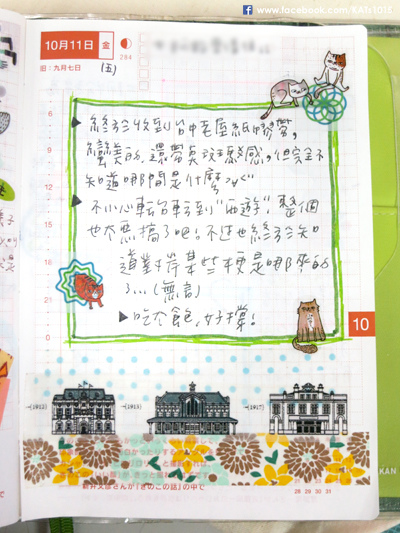 www.facebook.com/
10月11日 金
旧:九月七日 (五)
284
6
9
12
15
18
21
0
▶ 終於收到台中老屋紙膠帶,
蠻美的,還帶感,但完全不
知道哪間是什麼>_<"
▶ 不小心轉台轉到"西遊",整個
也太搞了吧!不過也終於知
道對岸某些梗是哪來的
了...(無言)
▶吃太飽,好撐!
10
(1912)
(1913)
(1917)
28 29 30 31
新井文彦さんが「きのこの話」の中で
KAN